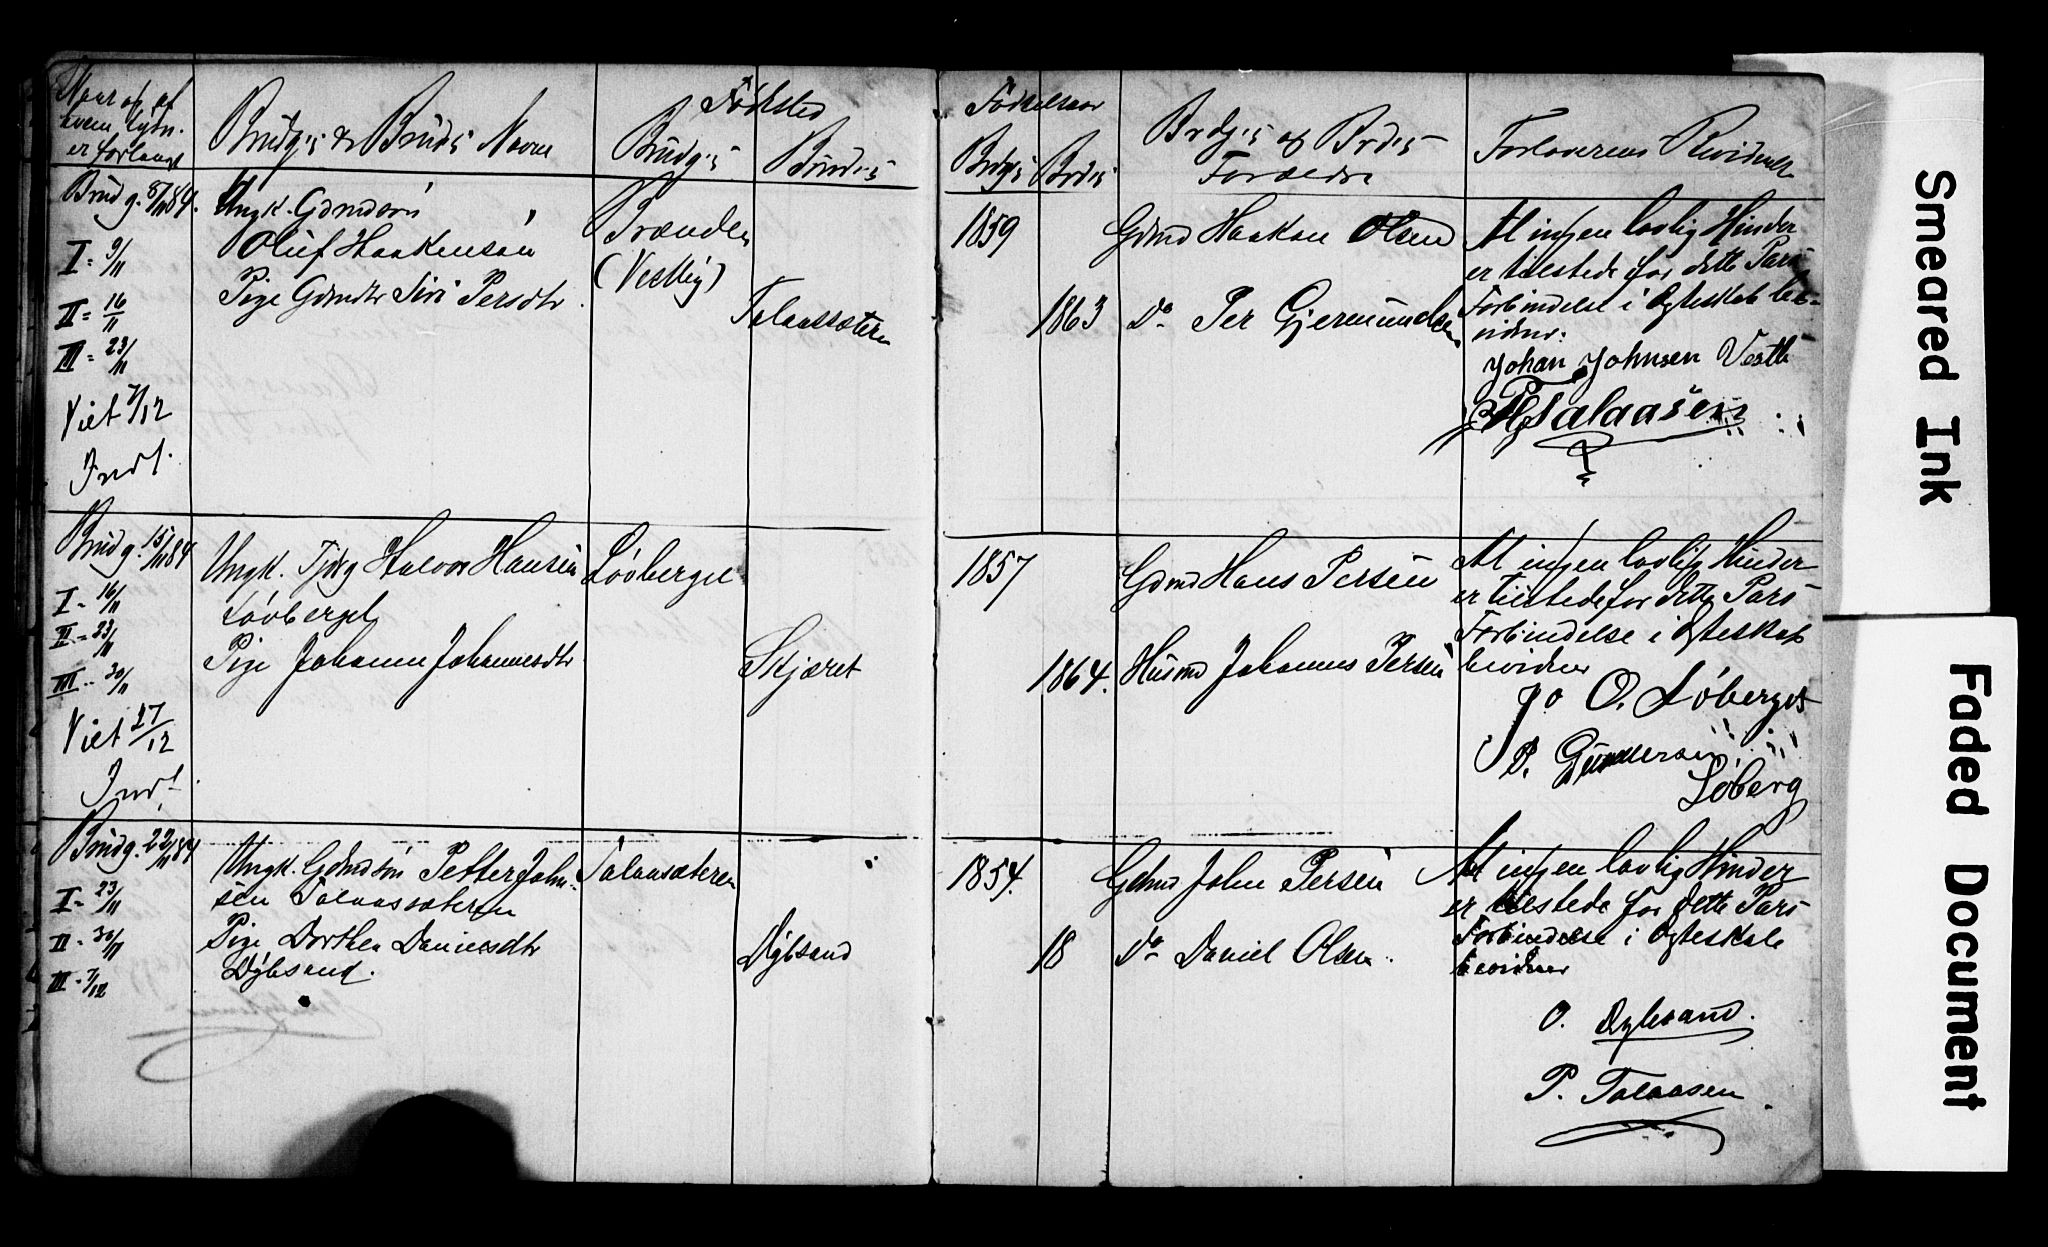 Naar og af
hvem lysn.
er forlangt
Brudg.s & Bruds Navne
Fødested
Brudg.s
Brudes
Fødselsaar
Brdgs
Brdes
Brdg.s og Brdes
Forældre
Forloverens Revidens
Brudg. 8/11 84.
I = 9/11
II = 16/11
III = 23/11
Viet 7/12
Indf.
Ungk. Gdmdsøn
Oluf Haakensøn
Pige Gdmdtr Siri Persdtr.
Brænden
(Vestby)
Talaassæteren
1859
1863
Gdmd Haakon Olsen
Do Per Gjermundsen
At ingen lovlig Hinder
er tilstede for dette Pars
Forbindelse i Ægteskab be-
vidner:
Johan Johnsen Vestb
Talaasen
Brudg. 15/11 84
I = 16/11
II = 23/11
III = 30/11
Viet 27/12
Indf.
Ungk. Halvor Hansen
Løvberget
Pige Johanne Johannesdtr
Løvberget
Skjæret
1857
1864.
Gdmd Hans Persen
Husmd Johannes Persen
At ingen lovlig Hinder
er tilstede for dette Pars
Forbindelse i Ægteskab
bevidner
Jo O. Løberget
P. Gundersen
Løberg
Brudg. 22/11 84
I = 23/11
II = 30/11
III = 7/12
Ungk. Gdmdsøn Petter John-
sen Talaassæteren
Pige Dorthea Danielsdtr
Dybsand.
Talaassæteren
Dybsand
1854.
18
Gdmd John Persen
Do Daniel Olsen.
At ingen lovlig Hinder
er tilstede for dette Pars
Forbindelse i Ægteskab
bevidner
O. Dybsand.
P. Talaasen
Smeared Ink
Faded Document